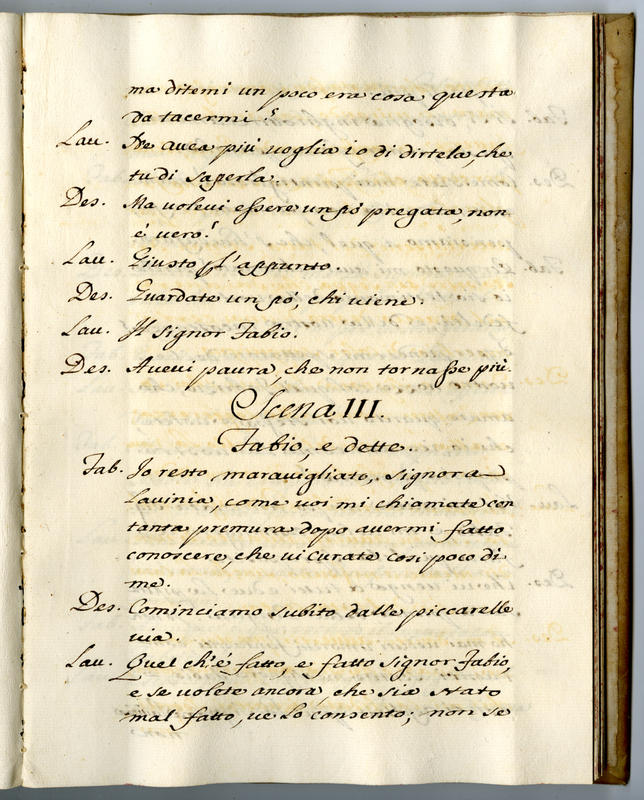 ma ditemi un poco era cosa questa
da tacermi?
Lau. Ne avea più voglia io di dirtela, che
tu di saperla.
Des. Ma volevi essere un pò pregata, non
è vero?
Lau. Giusto p l'appunto.
Des. Guardate un pò, chi viene.
Lau. Il Signor Fabio.
Des. Avevi paura, che non tornasse più.
Scena III.
Fabio, e dette.
Fab. Io resto maravigliato, signora
Lavinia, come voi mi chiamate con
tanta premura dopo avermi fatto
conoscere, che vi curate così poco di
me.
Des. Cominciamo subito dalle piccarelle
via.
Lau. Quel ch'è fatto, e fatto Signor Fabio,
e se volete ancora, che sia stato
mal fatto, ve lo consento; non se